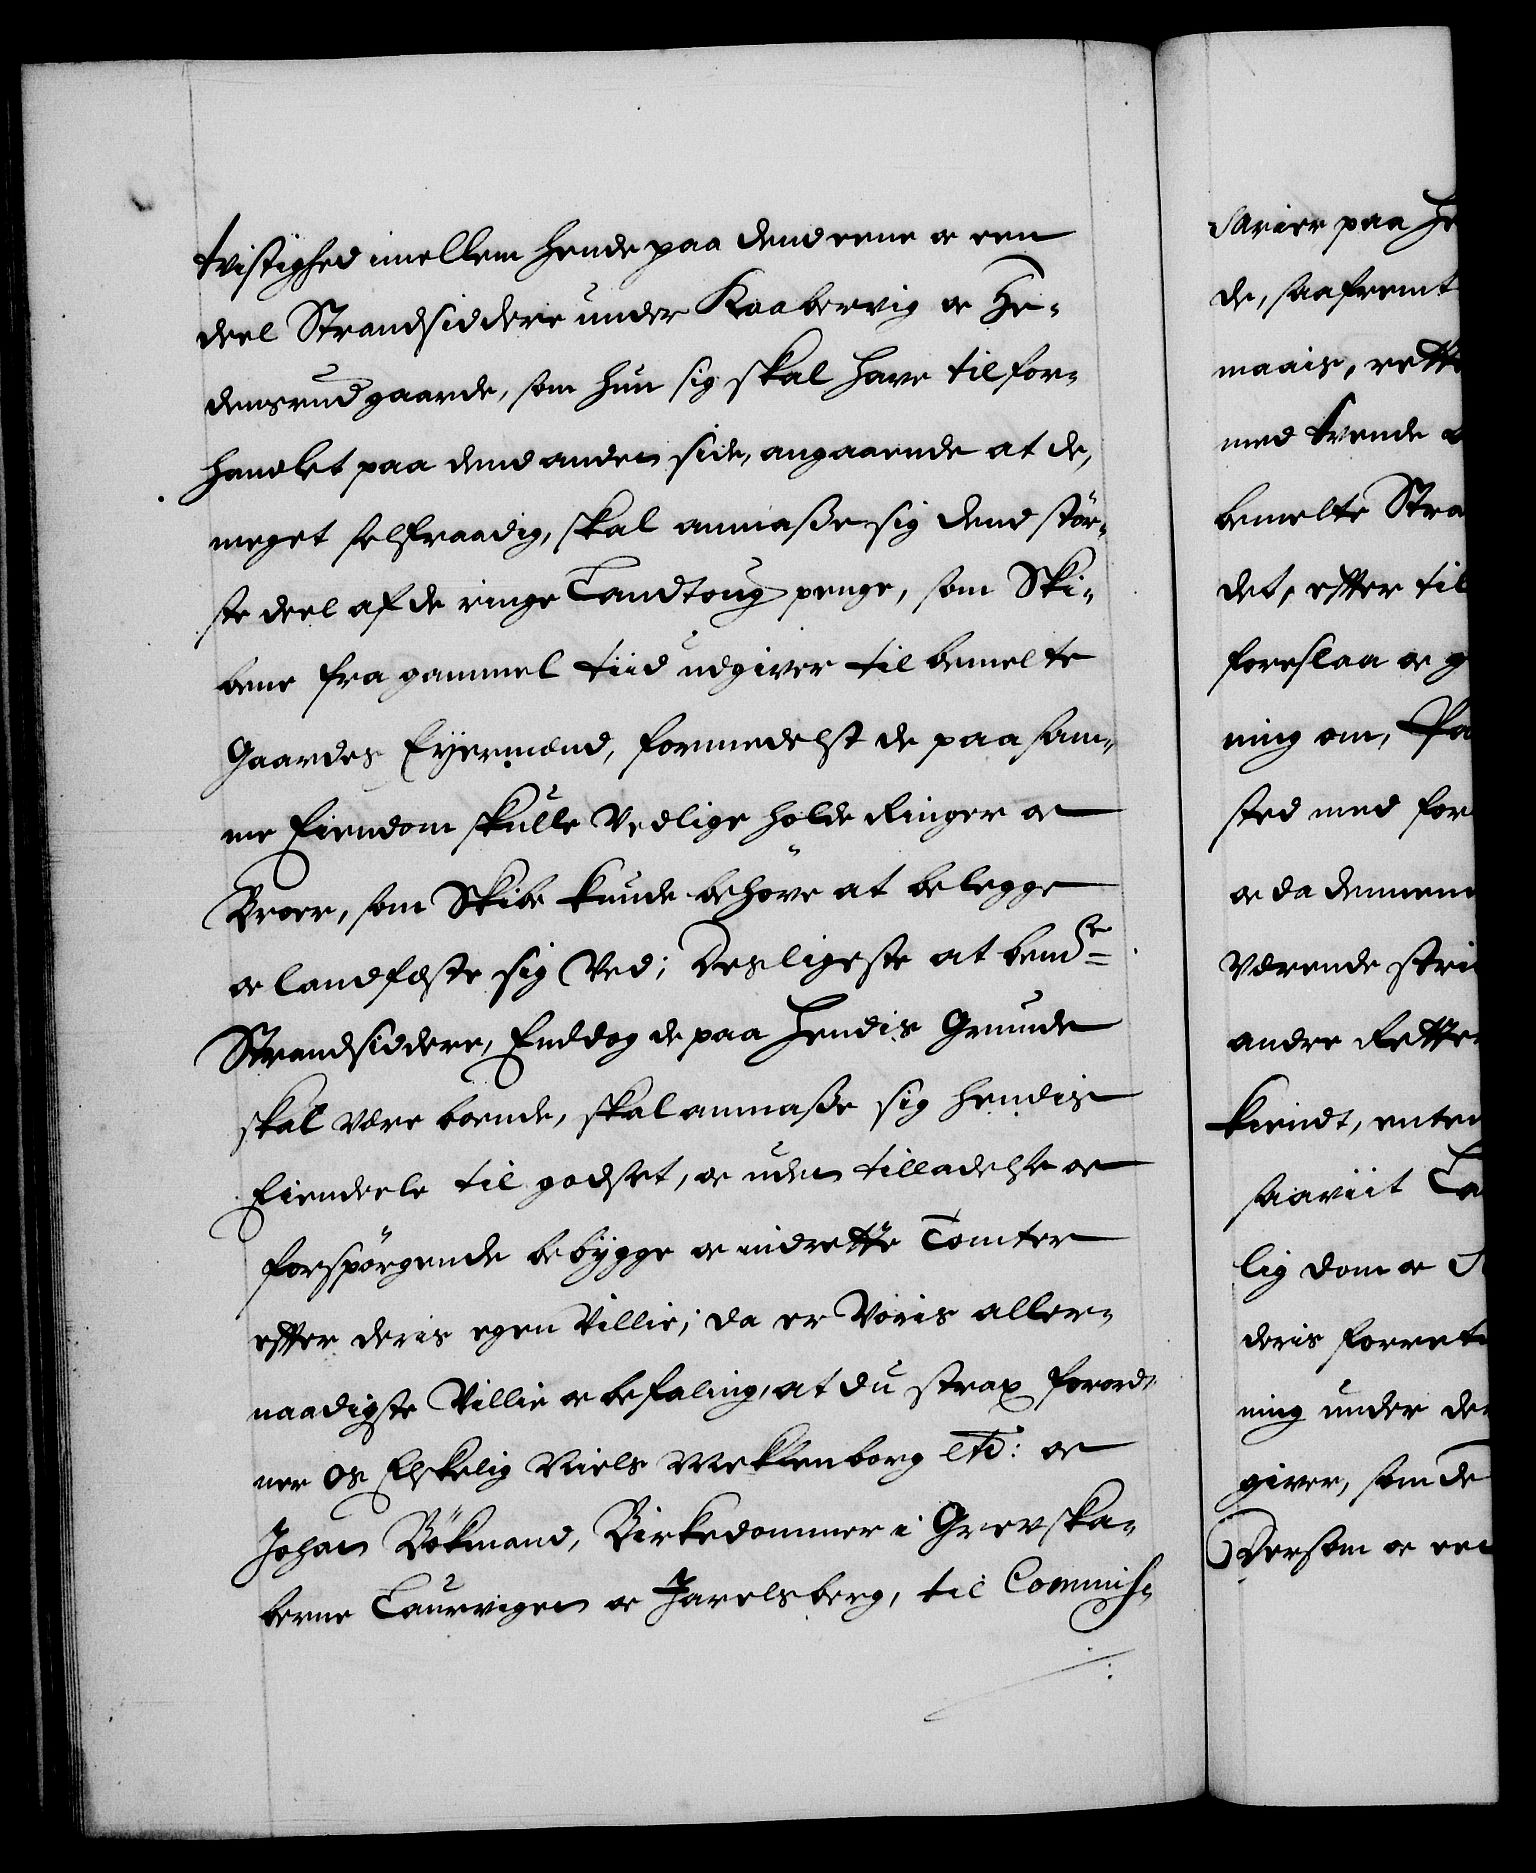 tvistighed imellem hende paa dend eene og een
deel Strandsiddere under Kaabervig og He-
densrud gaarde, som hun sig skal have tilfor-
handlet paa dend anden side, angaaende at de,
meget selfraadig, skal anmaße sig dend stør-
ste deel af de ringe Landtoug penge, som Ski-
bene fra gammel tiid udgiver til bemelte
Gaardes Eyermænd, formedelst de paa sam-
me Eiendom skulle Vedlige holde Ringer og
Broer, som Skibe kunde behøve at belegge
og landfæste sig Ved; Desligeste at bemte
Strandsiddere, Enddog de paa hendis Grunde
skal være boende, skal anmaße sig hendis
Eiendeele til godset, og uden tilladelse og
forspørgende bebygge og indrette Tomter
efter deris egen Villie; da er Voris aller-
naadigste Villie og befaling, at du strax forord-
ner Os Elskelig Niels Mecklenborg etc: og
Johan Bökmand, Birkedommer i Grevska-
berne Laurvigen og Jarelsberg, til Commiss-
saries paa He
de, saafremt
maais, rette
med tvende
bemelte Stra
det, efter til
foreslaa og g
ning om, Pa
sted med for
og da dennem
Værende stri
andre Retter
kiendt, enten
saaviit La
lig dom og
deris forret
ning under de
giver, som de
Dersom og een